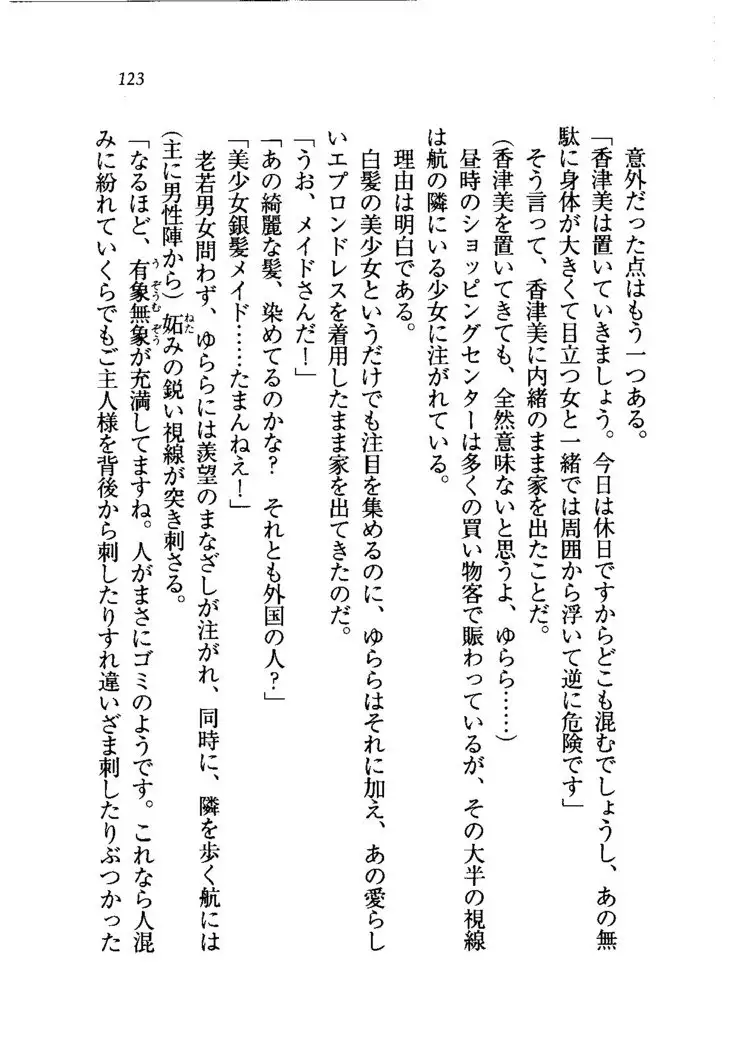 123
意外だった点はもう一つある。
「香津美は置いていきましょう。今日は休日ですからどこも混むでしょうし、あの無
駄に身体が大きくて目立つ女と一緒では周囲から浮いて逆に危険です」
そう言って、香津美に内緒のまま家を出たことだ。
(香津美を置いてきても、全然意味ないと思うよ、ゆらら……)
昼時のショッピングセンターは多くの買い物客で賑わっているが、その大半の視線
は航の隣にいる少女に注がれている。
理由は明白である。
白髪の美少女というだけでも注目を集めるのに、ゆららはそれに加え、あの愛らし
いエプロンドレスを着用したまま家を出てきたのだ。
「うお、メイドさんだ！」
「あの綺麗な髪、染めてるのかな？　それとも外国の人？」
「美少女銀髪メイド……たまんねえ！」
老若男女問わず、ゆららには羨望のまなざしが注がれ、同時に、隣を歩く航には
(主に男性陣から)妬みの鋭い視線が突き刺さる。
「なるほど、有象無象が充満してますね。人がまさにゴミのようです。これなら人混
みに紛れていくらでもご主人様を背後から刺したりすれ違いざま刺したりぶつかった